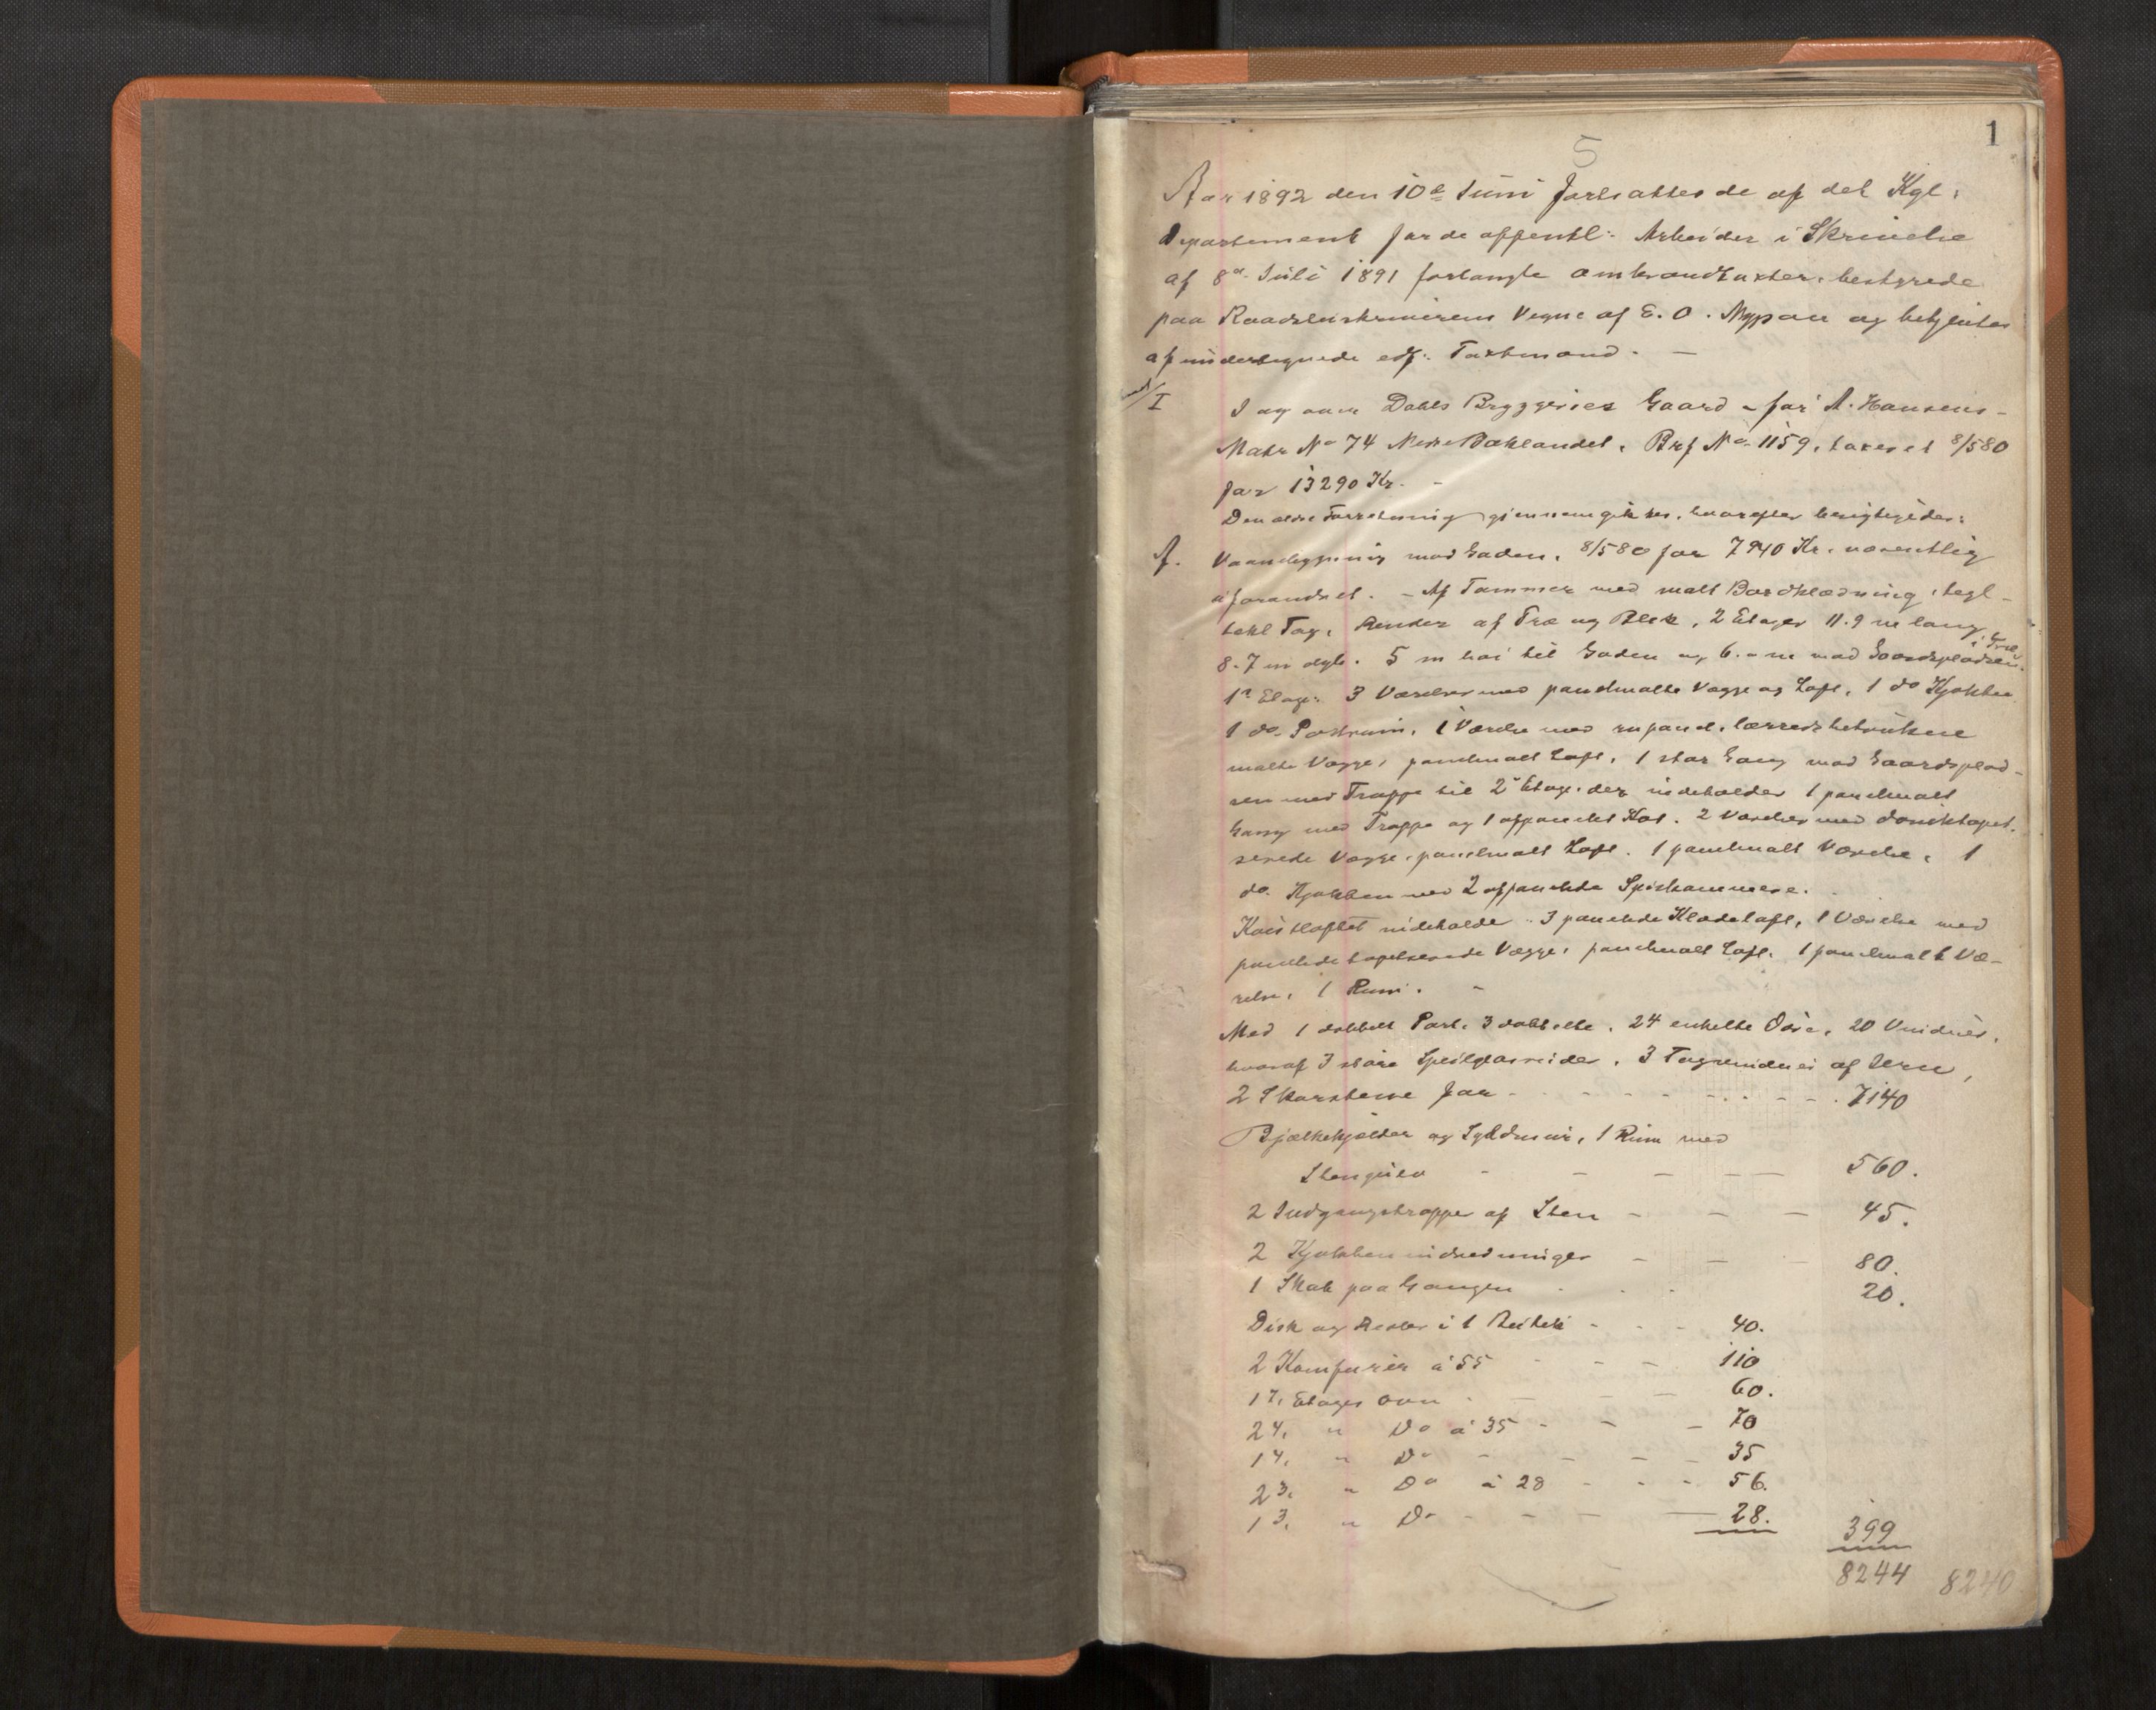 1
5
Aar 1892 den 10de Juni fortsattes de af det Kgl:
Departement for de offentl: Arbeider i Skrivelse
af 8de Juli 1891 forlangte Ombrandtaxter, bestyrede
paa Raadstuskriverens Vegne af E. O. Nypan og betjentes
af undertegnede edf: Taxtmænd. —
I
I og om Dahls Bryggeries Gaard – før A. Hansens –
Matr No 74 Nedre Baklandet, Brf No 1159, taxeret 8/5 80
for 13290 Kr. –
Den ældre Forretning gjennemgikkes, hvorefter berigtigedes:
A.
Vaaningbygning mod Gaden, 8/5 80 for 7940 Kr. væsentlig
uforandret. – Af Tømmer med malt Bordklædning, tegl-
tækt Tag, Render af Træ og Blik, 2 Etager 11.9 m lang,
8.7 m dyb. 5 m høi til Gaden og 6. m mod Gaardspladsen.
1ste Etage: 3 Værelser med panelmalte Vægge og Loft, 1 do Kjøkken
1 do Portrum, 1 Værelse med lærredsbetrukne
malte Vægge, panelmalt Loft, 1 stor Gang mod Gaardsplad-
sen med Trappe til 2den Etage, der indeholder 1 panelmalt
Gang med Trappe og 1 afpanelet Kot. 2 Værelser med
serede Vægge, panelmalt Loft. 1 panelmalt Værelse, 1
do. Kjøkken med 2 afpanelede Spiskammere.
Kvistloftet indeholder 3 panelede Klædeloft, 1 Værelse med
panelede tapetserede Vægge, panelmalt Loft. 1 panelmalt Væ-
relse, 1 Rum. –
Med 1 dobbelt Port, 3 dobbelte, 24 enkelte Døre, 20 Vinduer,
hvoraf 3 store Speilglasruder, 3 Tagvinduer af Jern,
2 Skorstene for - - - - - - - - 7140
Bjælkekjælder og Syldmur, 1 Rum med
Stengulv - - - - 560.
2 Indgangstrapper af Sten - - - 45.
2 Kjøkkenindredninger - - - 80.
1 Skab paa Gangen - - - 20.
Disk og Reoler i 1 Butik - - - 40.
2 Komfurer à 55 - - - 110
1 7. Etages Ovn - - - 60.
2 4. " Do à 35 - - - 70
1 4. " Do - - - - 35
2 3. " Do à 28 - - - 56.
1 3. " Do - - - - 28.
399
8244 8240